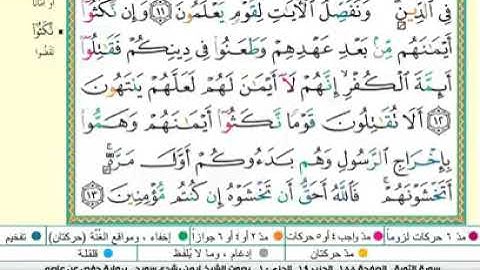 فِي ٱلدِّينِ ۗ وَنُفَصِّلُ ٱلْأَيَٰتِ لِقَوْمٍ يَعْلَمُونَ ﴿١١﴾ وَإِن نَّكَثُوٓا۟
أَيْمَٰنَهُم مِّنۢ بَعْدِ عَهْدِهِمْ وَطَعَنُوا۟ فِي دِينِكُمْ فَقَٰتِلُوٓا۟
أَئِمَّةَ ٱلْكُفْرِ ۙ إِنَّهُمْ لَآ أَيْمَٰنَ لَهُمْ لَعَلَّهُمْ يَنتَهُونَ
﴿١٢﴾ أَلَا تُقَٰتِلُونَ قَوْمًا نَّكَثُوٓا۟ أَيْمَٰنَهُمْ وَهَمُّوا۟
بِإِخْرَاجِ ٱلرَّسُولِ وَهُم بَدَءُوكُمْ أَوَّلَ مَرَّةٍ ۚ
أَتَخْشَوْنَهُمْ ۚ فَٱللَّهُ أَحَقُّ أَن تَخْشَوْهُ إِن كُنتُم مُّؤْمِنِينَ ﴿١٣﴾
نَّكَثُوٓا۟
نَقَضُوا
مدّ ٦ حركات لزوماً مدّ واجب ٤ أو ٥ حركات مدّ ٢ أو ٤ أو ٦ جوازاً إخفاء، ومواقع الغُنَّة (حركتان) تفخيم
مدّ حركتان إدغام، وما لا يُلفَظ قلقلة